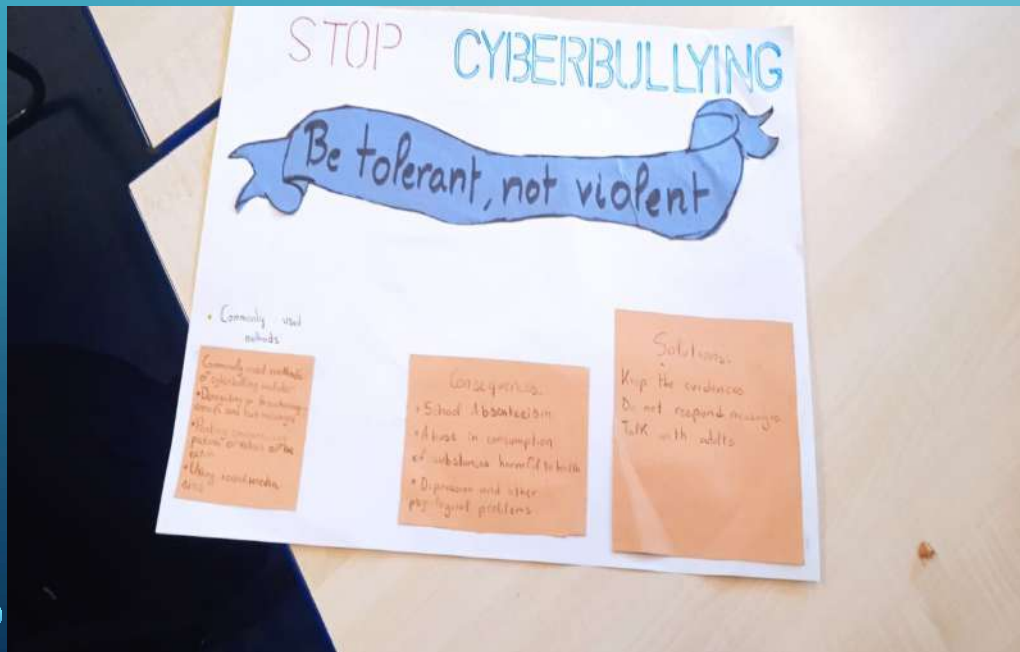 STOP CYBERBULLYING
Be tolerant, not violent
• Commonly used
methods
Commonly used methods
of cyberbullying include:
•
or threatening
emails and text messages
• Posting
or videos of the
• Using social media
Consequences:
• School Absenteeism
• Abuse in consumption
of substances harmful to health
• Depression and other
problems
Solutions:
Keep the evidences
Do not respond messages
Talk with adults